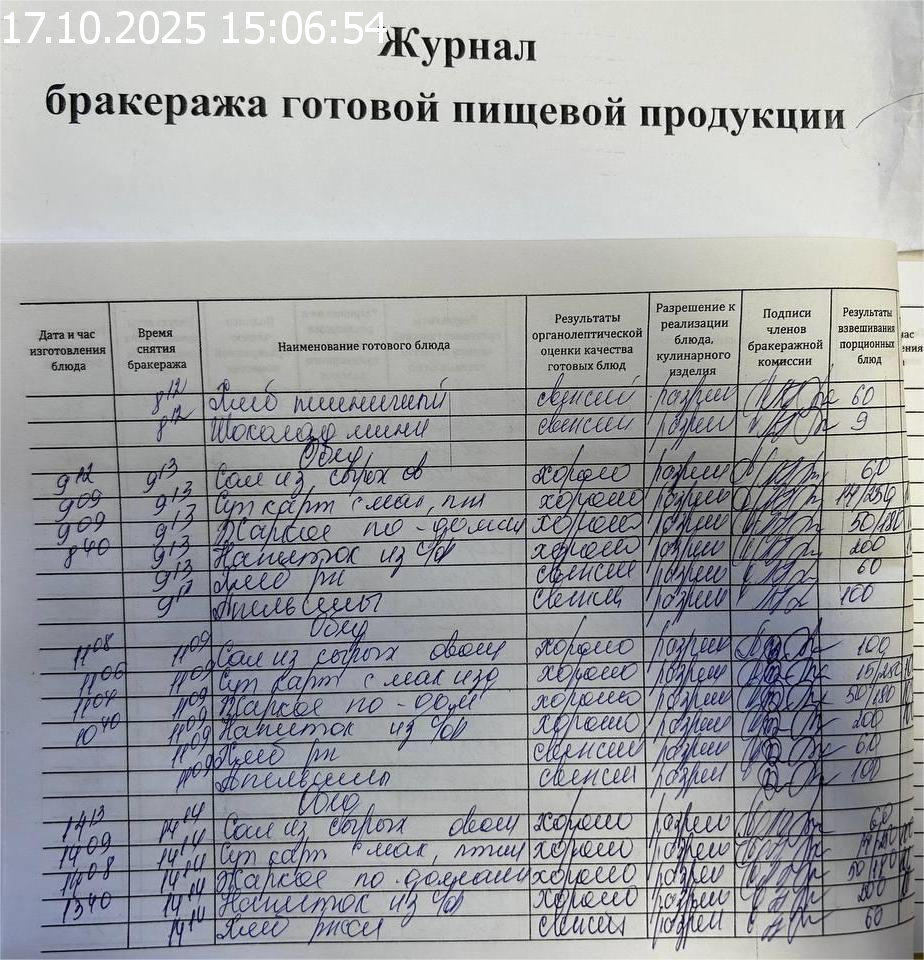 17.10.2025 15:06:54
Журнал
бракеража готовой пищевой продукции
Дата и час изготовления блюда
Время снятия бракеража
Наименование готового блюда
Результаты органолептической оценки качества готовых блюд
Разрешение к реализации блюда, кулинарного изделия
Подписи членов бракеражной комиссии
Результаты взвешивания порционных блюд
8 12 Хлеб пшеничный свежий разреш 60
8 12 Шоколад мини свежий разреш 9
Обед
9 12 9 13 Сал из сырых ов хорошо разреш 60
9 09 9 13 Суп карт с мак, пт хорошо разреш 14/250
9 09 9 13 Жаркое по-домаш хорошо разреш 50/180
8 40 9 13 Напиток из с/м хорошо разреш 200
9 13 Хлеб рж свежий разреш 60
9 13 Апельсины свежий разреш 100
Обед
11 08 11 09 Сал из сырых овощ хорошо разреш 100
11 06 11 09 Суп карт с мак изд хорошо разреш 15/250
11 04 11 09 Жаркое по-дом хорошо разреш 50/180
10 40 11 09 Напиток из хорошо разреш 200
11 09 Хлеб рж свежий разреш 60
11 09 Апельсины свежий разреш 100
Обед
14 13 14 14 Сал из сырых овощ хорошо разреш 60
14 09 14 14 Суп карт с мак, птиц хорошо разреш
14 08 14 14 Жаркое по-домаш хорошо разреш 50/180
13 40 14 14 Напиток из хорошо разреш 200
14 14 Хлеб ржан свежий разреш 60